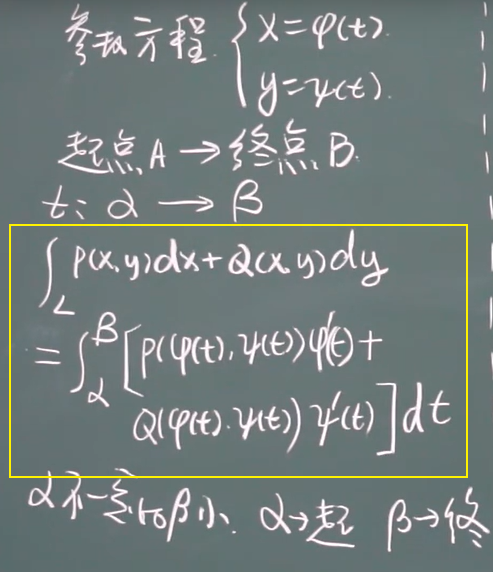 参数方程 { x=φ(t)
y=ψ(t).
起点A→终点B.
t: α → β
∫_L P(x,y)dx+Q(x,y)dy
=∫_α^β [P(φ(t),ψ(t))φ'(t)+
Q(φ(t).ψ(t))ψ'(t)]dt
α不一定比β小、α→起 β→终